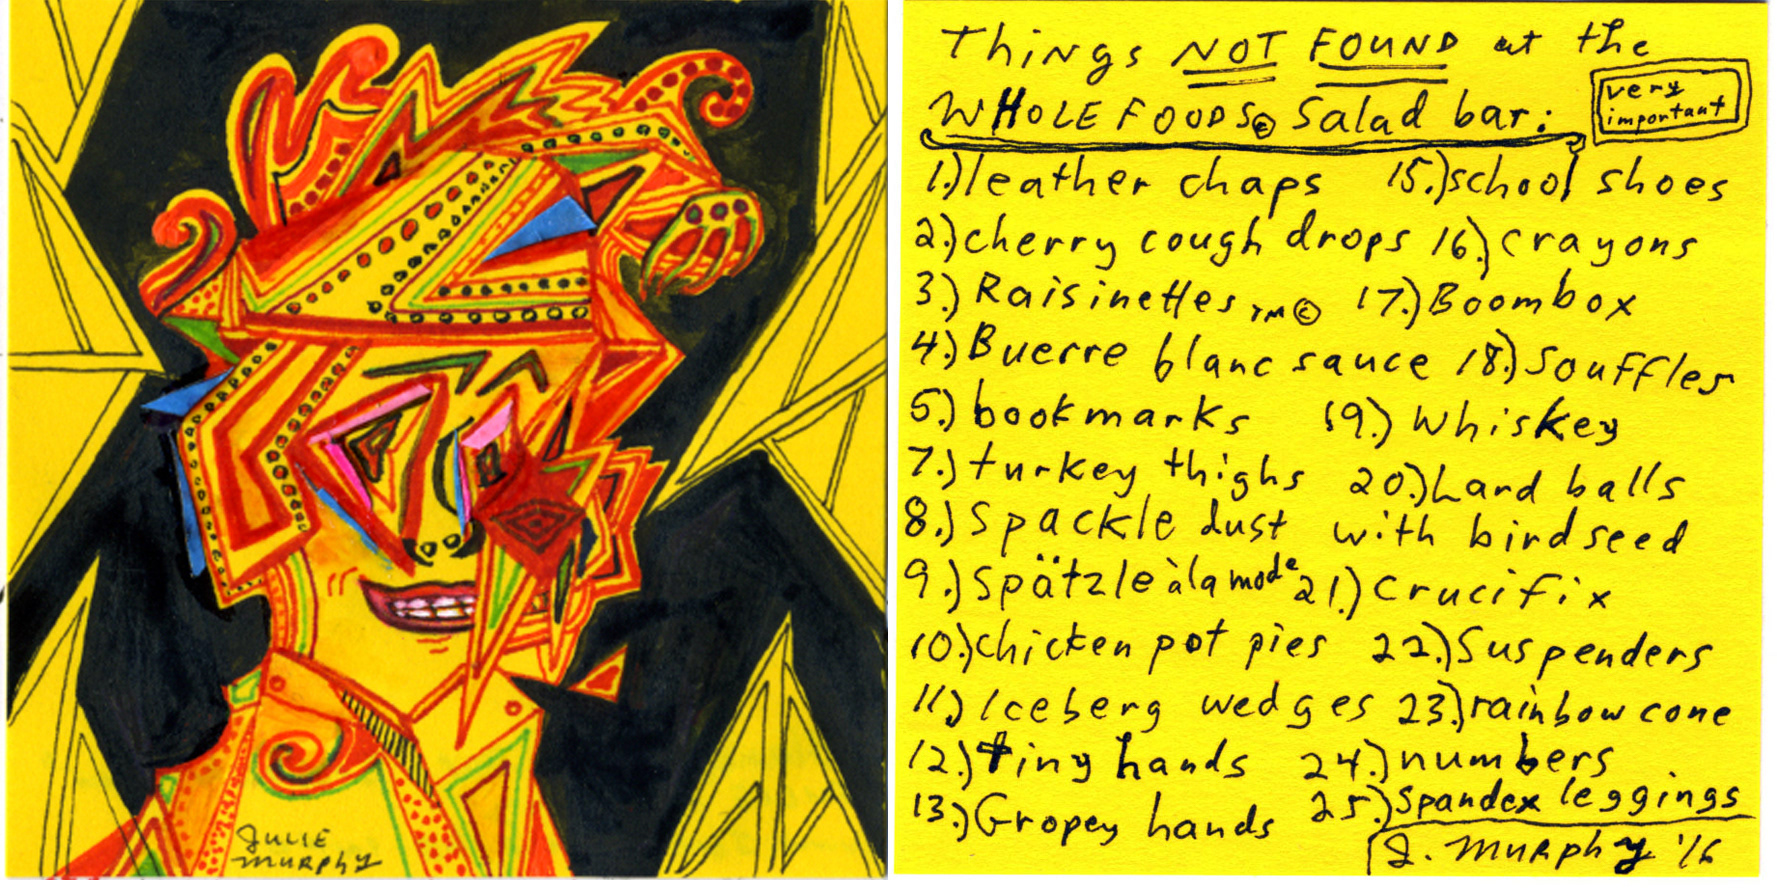 JULIE
MURPHY
Things NOT FOUND at the
WHOLE FOODS© Salad bar:
very
important
1.) leather chaps
2.) cherry cough drops
3.) Raisinettes TM©
4.) Buerre blanc sauce
5.) bookmarks
7.) turkey thighs
8.) Spackle dust
9.) Spätzle à la mode
10.) chicken pot pies
11.) Iceberg wedges
12.) tiny hands
13.) Gropey hands
15.) school shoes
16.) crayons
17.) Boombox
18.) Souffles
19.) Whiskey
20.) Lard balls
with birdseed
21.) Crucifix
22.) Suspenders
23.) rainbow cone
24.) numbers
25.) Spandex leggings
J. Murphy '16